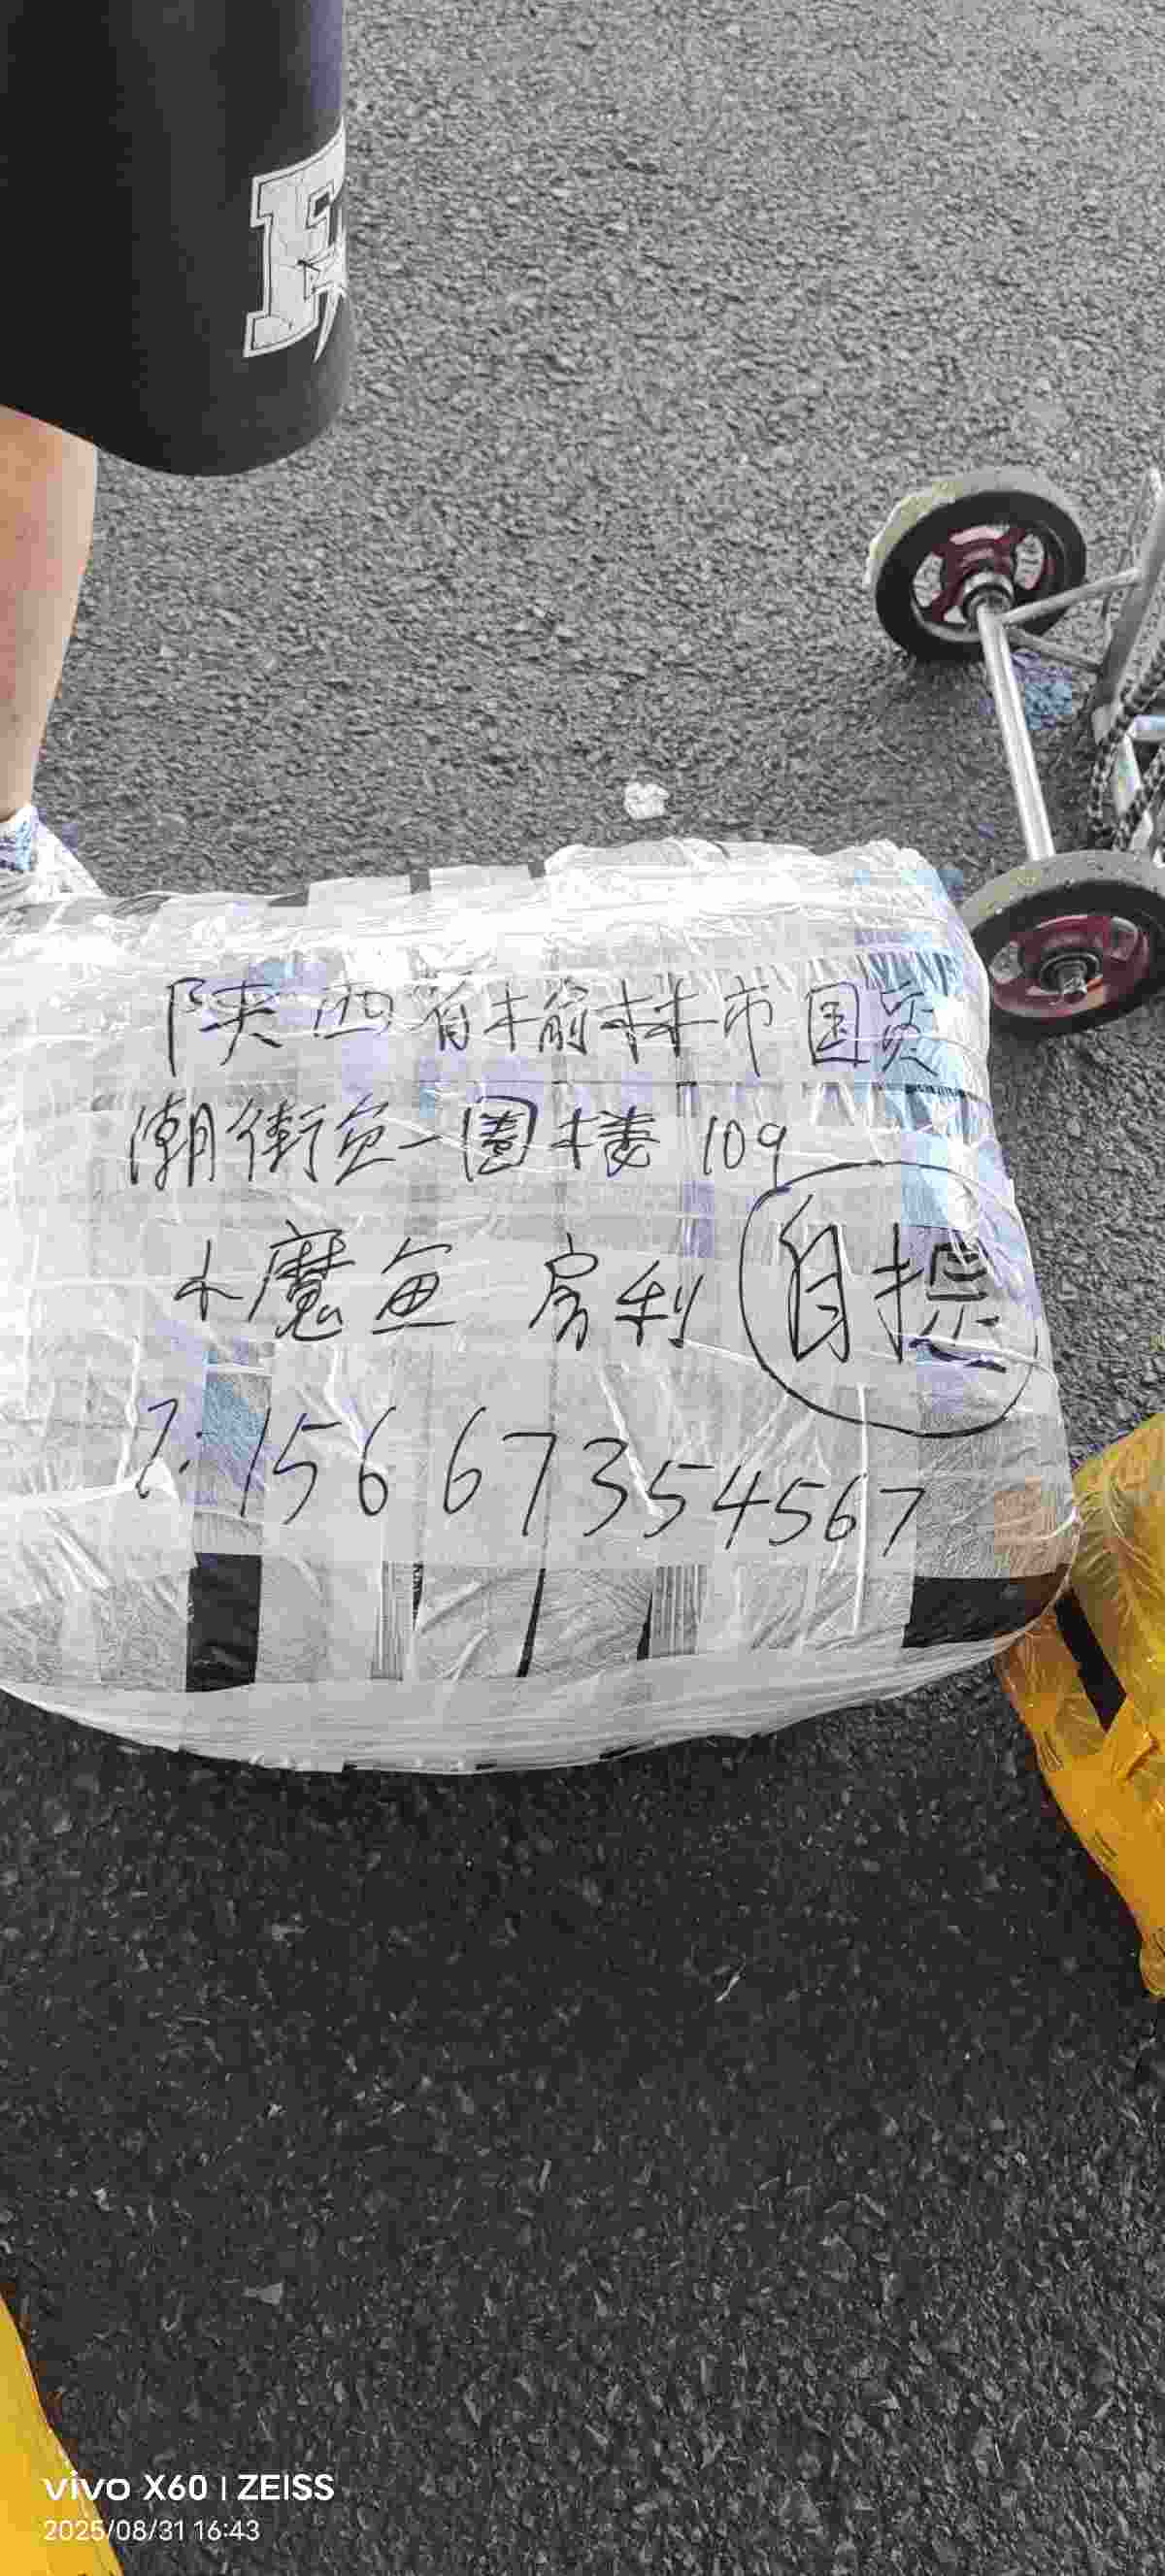 陕西省榆林市国贸
潮街负一圈楼 109
小魔鱼 房利 自提
T:15667354567
vivo X60 | ZEISS
2025/08/31 16:43